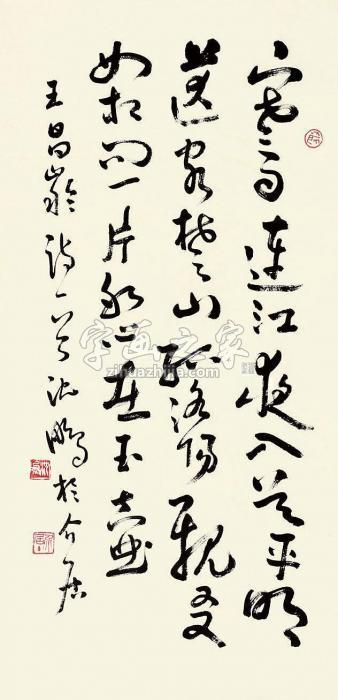 寒雨連江夜入吴平明
送客楚山孤洛陽親友
如相问一片冰心在玉壶
王昌齡诗一首沈鹏於介居
字画之家
zihuazhijia.com